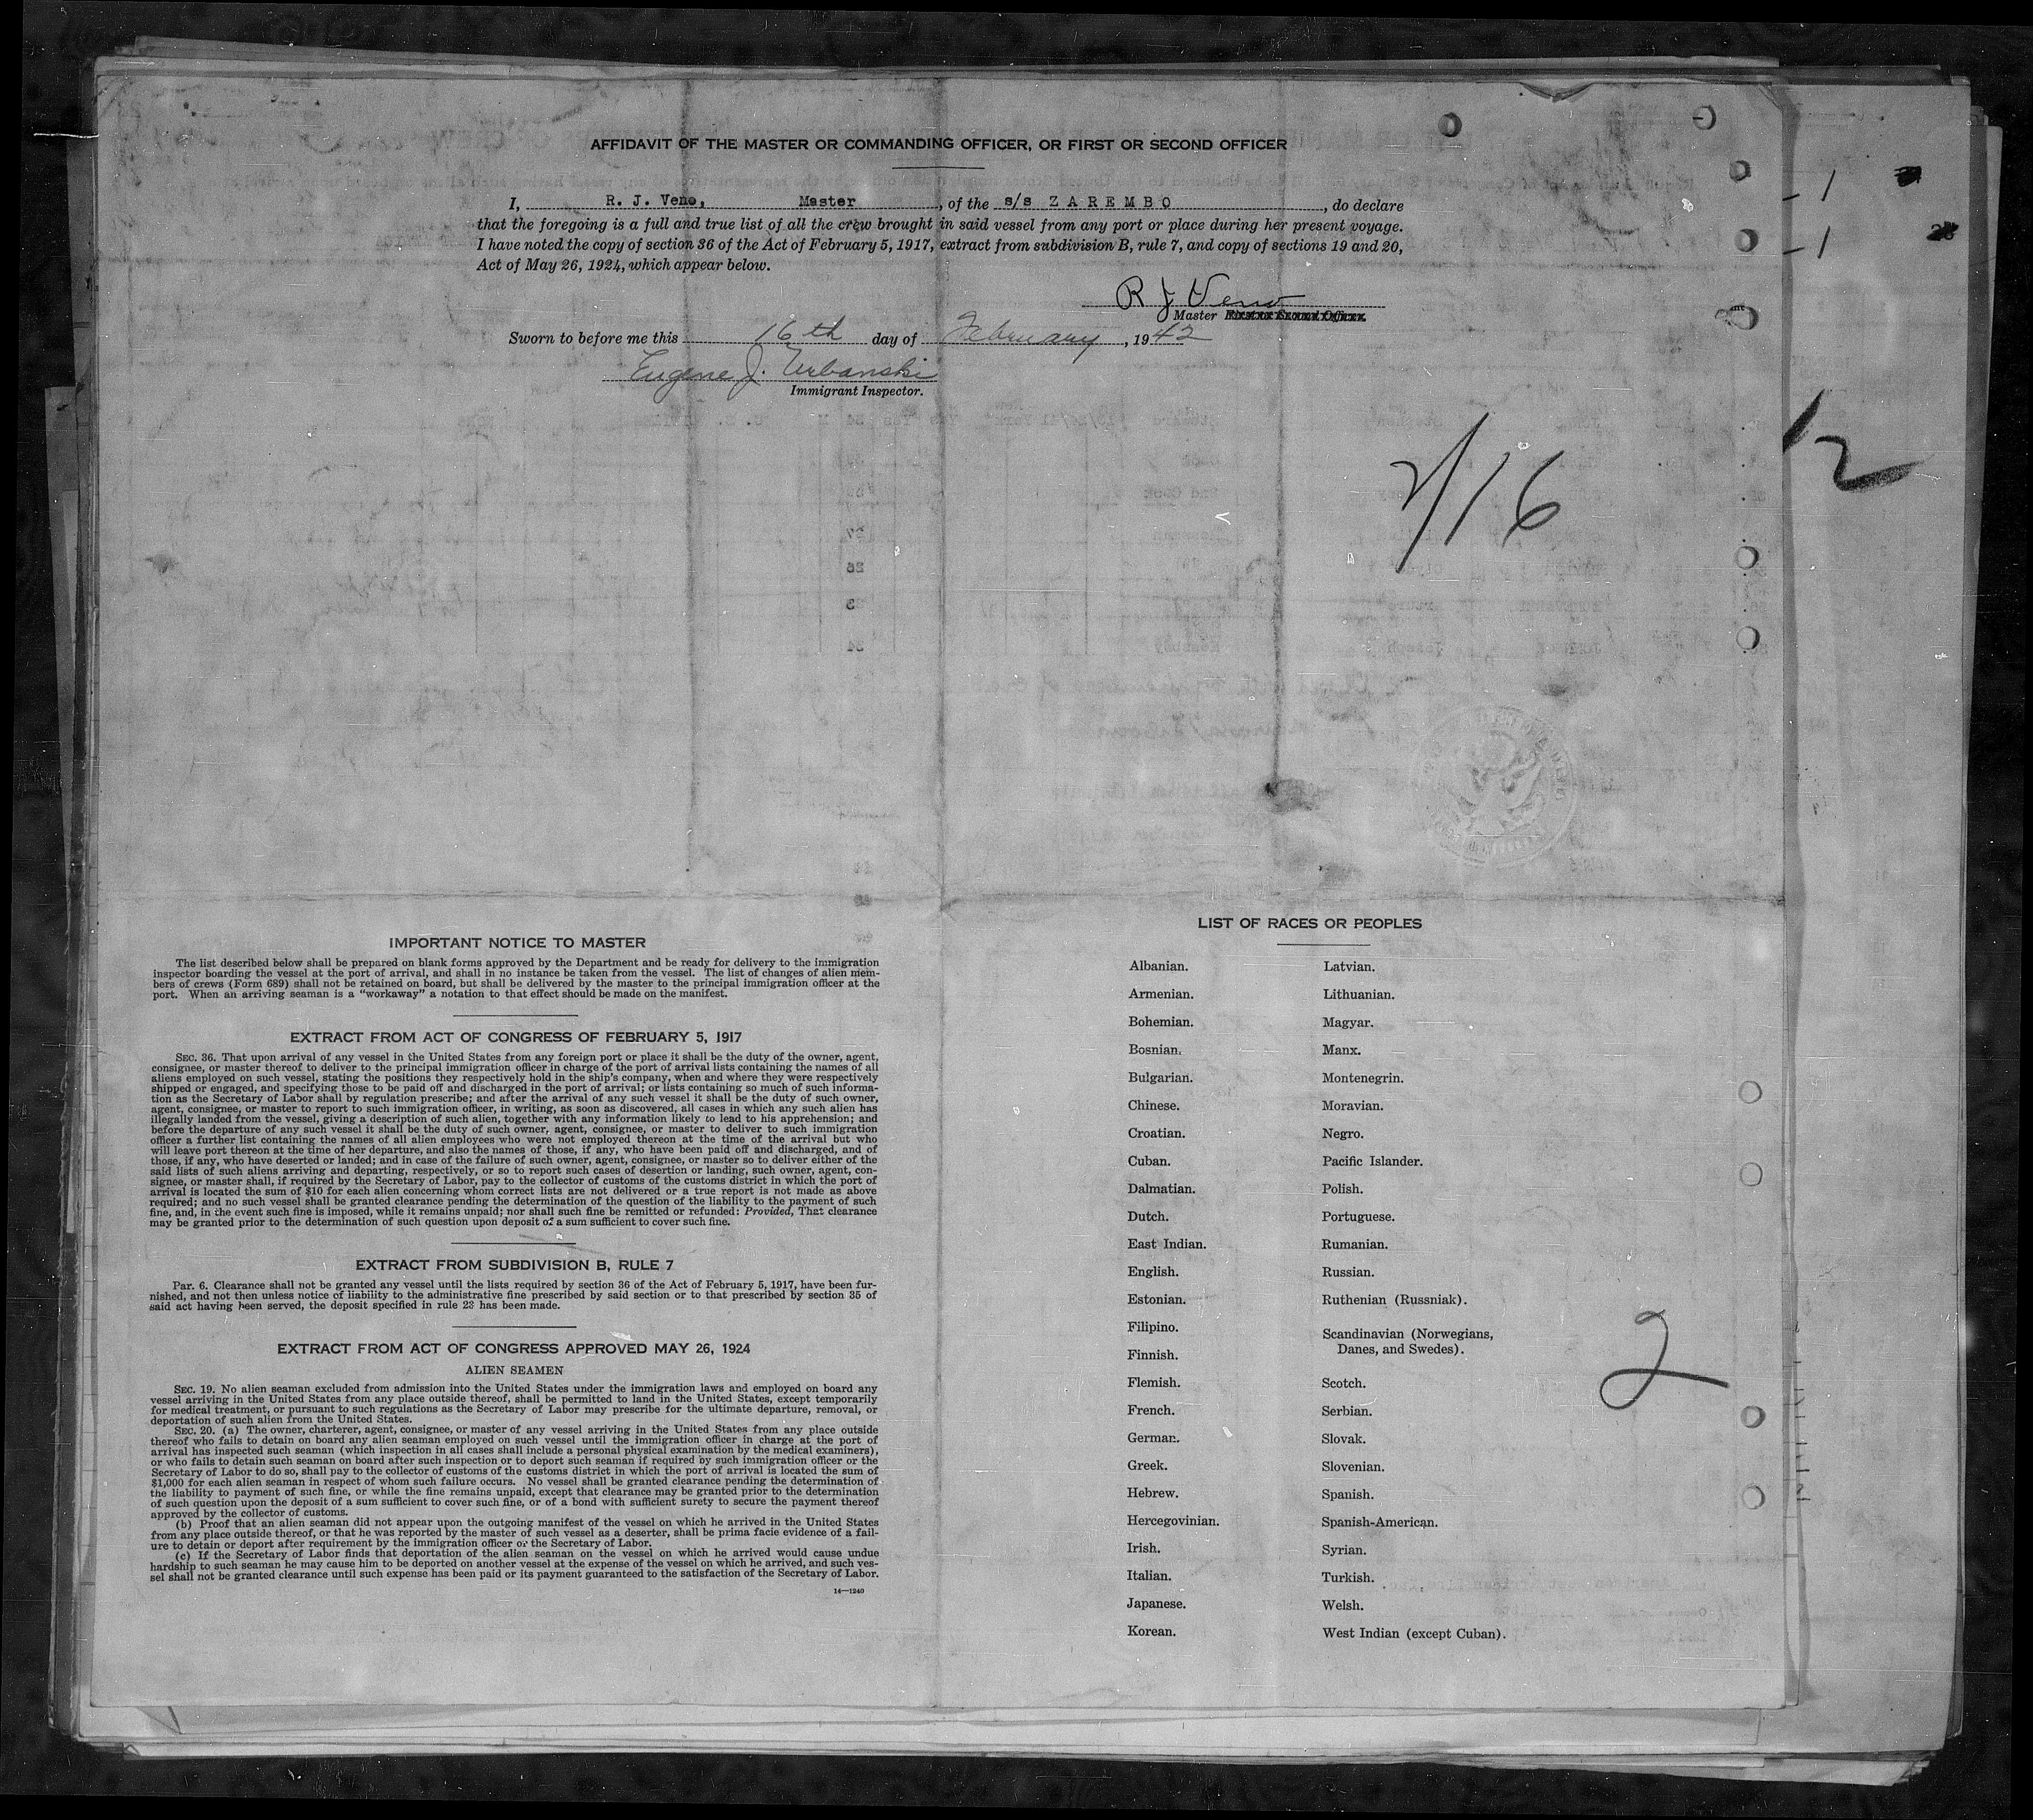 AFFIDAVIT OF THE MASTER OR COMMANDING OFFICER, OR FIRST OR SECOND OFFICER
I, R. J. Veno, Master, of the s/s Z A R E M B O, do declare
that the foregoing is a full and true list of all the crew brought in said vessel from any port or place during her present voyage.
I have noted the copy of section 36 of the Act of February 5, 1917, extract from subdivision B, rule 7, and copy of sections 19 and 20,
Act of May 26, 1924, which appear below.
R J Veno
Master First or Second Officer.
Sworn to before me this 16th day of February, 1942
Eugene J. Urbanski
Immigrant Inspector.
2/16
12
-1
-1
IMPORTANT NOTICE TO MASTER
The list described below shall be prepared on blank forms approved by the Department and be ready for delivery to the immigration
inspector boarding the vessel at the port of arrival, and shall in no instance be taken from the vessel. The list of changes of alien mem-
bers of crews (Form 689) shall not be retained on board, but shall be delivered by the master to the principal immigration officer at the
port. When an arriving seaman is a "workaway" a notation to that effect should be made on the manifest.
EXTRACT FROM ACT OF CONGRESS OF FEBRUARY 5, 1917
SEC. 36. That upon arrival of any vessel in the United States from any foreign port or place it shall be the duty of the owner, agent,
consignee, or master thereof to deliver to the principal immigration officer in charge of the port of arrival lists containing the names of all
aliens employed on such vessel, stating the positions they respectively hold in the ship's company, when and where they were respectively
shipped or engaged, and specifying those to be paid off and discharged in the port of arrival; or lists containing so much of such informa-
tion as the Secretary of Labor shall by regulation prescribe; and after the arrival of any such vessel it shall be the duty of such owner,
agent, consignee, or master to report to such immigration officer, in writing, as soon as discovered, all cases in which any such alien has
illegally landed from the vessel, giving a description of such alien, together with any information likely to lead to his apprehension; and
before the departure of any such vessel it shall be the duty of such owner, agent, consignee, or master to deliver to such immigration
officer a further list containing the names of all alien employees who were not employed thereon at the time of the arrival but who
will leave port thereon at the time of her departure, and also the names of those, if any, who have been paid off and discharged, and of
those, if any, who have deserted or landed; and in case of the failure of such owner, agent, consignee, or master so to deliver either of the
said lists of such aliens arriving and departing, respectively, or so to report such cases of desertion or landing, such owner, agent, con-
signee, or master shall, if required by the Secretary of Labor, pay to the collector of customs of the customs district in which the port of
arrival is located the sum of $10 for each alien concerning whom correct lists are not delivered or a true report is not made as above
required; and no such vessel shall be granted clearance pending the determination of the question of the liability to the payment of such
fine, and, in the event such fine is imposed, while it remains unpaid; nor shall such fine be remitted or refunded: Provided, That clearance
may be granted prior to the determination of such question upon deposit of a sum sufficient to cover such fine.
EXTRACT FROM SUBDIVISION B, RULE 7
Par. 6. Clearance shall not be granted any vessel until the lists required by section 36 of the Act of February 5, 1917, have been fur-
nished, and not then unless notice of liability to the administrative fine prescribed by said section or to that prescribed by section 35 of
said act having been served, the deposit specified in rule 23 has been made.
EXTRACT FROM ACT OF CONGRESS APPROVED MAY 26, 1924
ALIEN SEAMEN
SEC. 19. No alien seaman excluded from admission into the United States under the immigration laws and employed on board any
vessel arriving in the United States from any place outside thereof, shall be permitted to land in the United States, except temporarily
for medical treatment, or pursuant to such regulations as the Secretary of Labor may prescribe for the ultimate departure, removal, or
deportation of such alien from the United States.
SEC. 20. (a) The owner, charterer, agent, consignee, or master of any vessel arriving in the United States from any place outside
thereof who fails to detain on board any alien seaman employed on such vessel until the immigration officer in charge at the port of
arrival has inspected such seaman (which inspection in all cases shall include a personal physical examination by the medical examiners),
or who fails to detain such seaman on board after such inspection or to deport such seaman if required by such immigration officer or the
Secretary of Labor to do so, shall pay to the collector of customs of the customs district in which the port of arrival is located the sum of
$1,000 for each alien seaman in respect of whom such failure occurs. No vessel shall be granted clearance pending the determination of
the liability to payment of such fine, or while the fine remains unpaid, except that clearance may be granted prior to the determination
of such question upon the deposit of a sum sufficient to cover such fine, or of a bond with sufficient surety to secure the payment thereof
approved by the collector of customs.
(b) Proof that an alien seaman did not appear upon the outgoing manifest of the vessel on which he arrived in the United States
from any place outside thereof, or that he was reported by the master of such vessel as a deserter, shall be prima facie evidence of a fail-
ure to detain or deport after requirement by the immigration officer or the Secretary of Labor.
(c) If the Secretary of Labor finds that deportation of the alien seaman on the vessel on which he arrived would cause undue
hardship to such seaman he may cause him to be deported on another vessel at the expense of the vessel on which he arrived, and such ves-
sel shall not be granted clearance until such expense has been paid or its payment guaranteed to the satisfaction of the Secretary of Labor.
14—1240
LIST OF RACES OR PEOPLES
Albanian.
Armenian.
Bohemian.
Bosnian.
Bulgarian.
Chinese.
Croatian.
Cuban.
Dalmatian.
Dutch.
East Indian.
English.
Estonian.
Filipino.
Finnish.
Flemish.
French.
German.
Greek.
Hebrew.
Hercegovinian.
Irish.
Italian.
Japanese.
Korean.
Latvian.
Lithuanian.
Magyar.
Manx.
Montenegrin.
Moravian.
Negro.
Pacific Islander.
Polish.
Portuguese.
Rumanian.
Russian.
Ruthenian (Russniak).
Scandinavian (Norwegians,
Danes, and Swedes).
Scotch.
Serbian.
Slovak.
Slovenian.
Spanish.
Spanish-American.
Syrian.
Turkish.
Welsh.
West Indian (except Cuban).
2